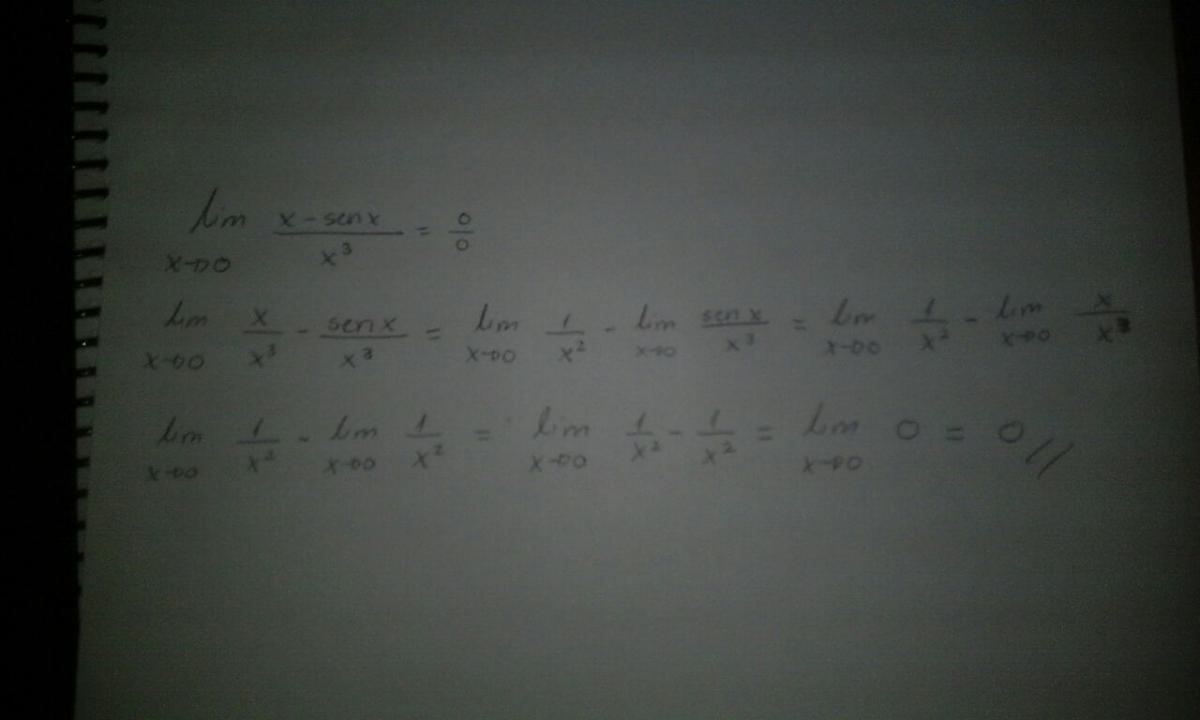 lim x→0 x - sen x / x³ = 0/0
lim x→0 x/x³ - sen x/x³ = lim x→0 1/x² - lim x→0 sen x/x³ = lim x→0 1/x² - lim x→0 x/x³
lim x→0 1/x² - lim x→0 1/x² = lim x→0 1/x² - 1/x² = lim x→0 0 = 0 //